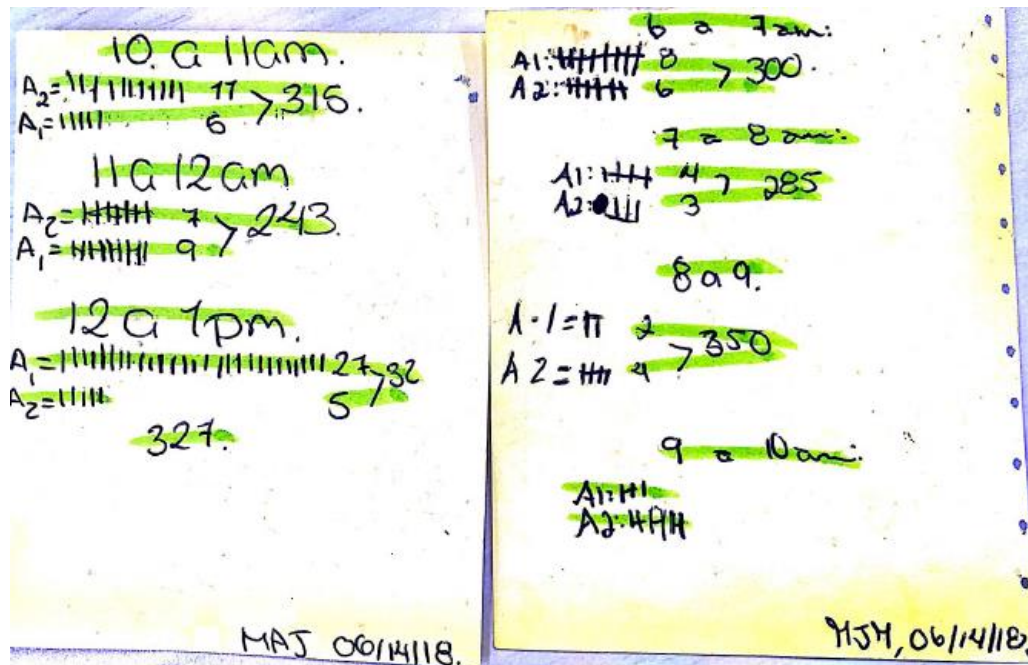 10 a 11am.
A2= 11 > 315.
A1= 6
11 a 12am
A2= 7 > 243.
A1= 9
12 a 1pm.
A1= 27 > 32
A2= 5
327.
MAJ 06/14/18.
6 a 7am:
A1: 8 > 300.
A2: 6
7 a 8am:
A1: 4 > 285
A2: 3
8 a 9.
A-1= 2 > 350
A2= 4
9 a 10am:
A1:
A2:
MJM, 06/14/18.